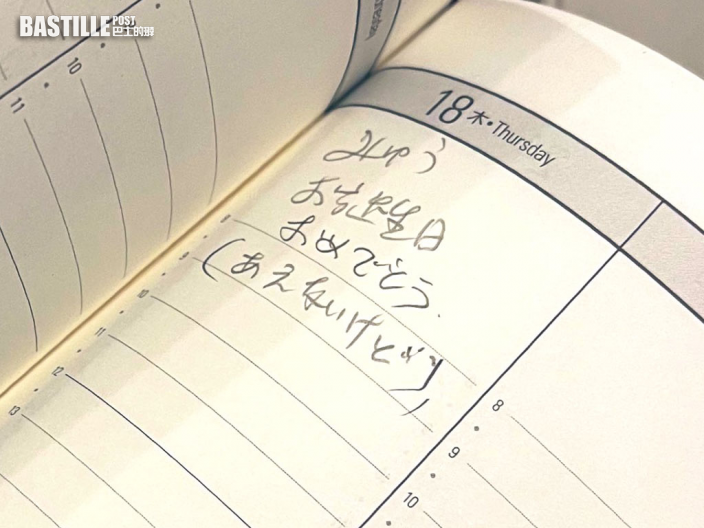 BASTILLE POST
巴士的報
11
10
18 木・Thursday
みゆう
お誕生日
おめでとう.
(あえないけど)
8
9
10
11
12
13
8
9
10